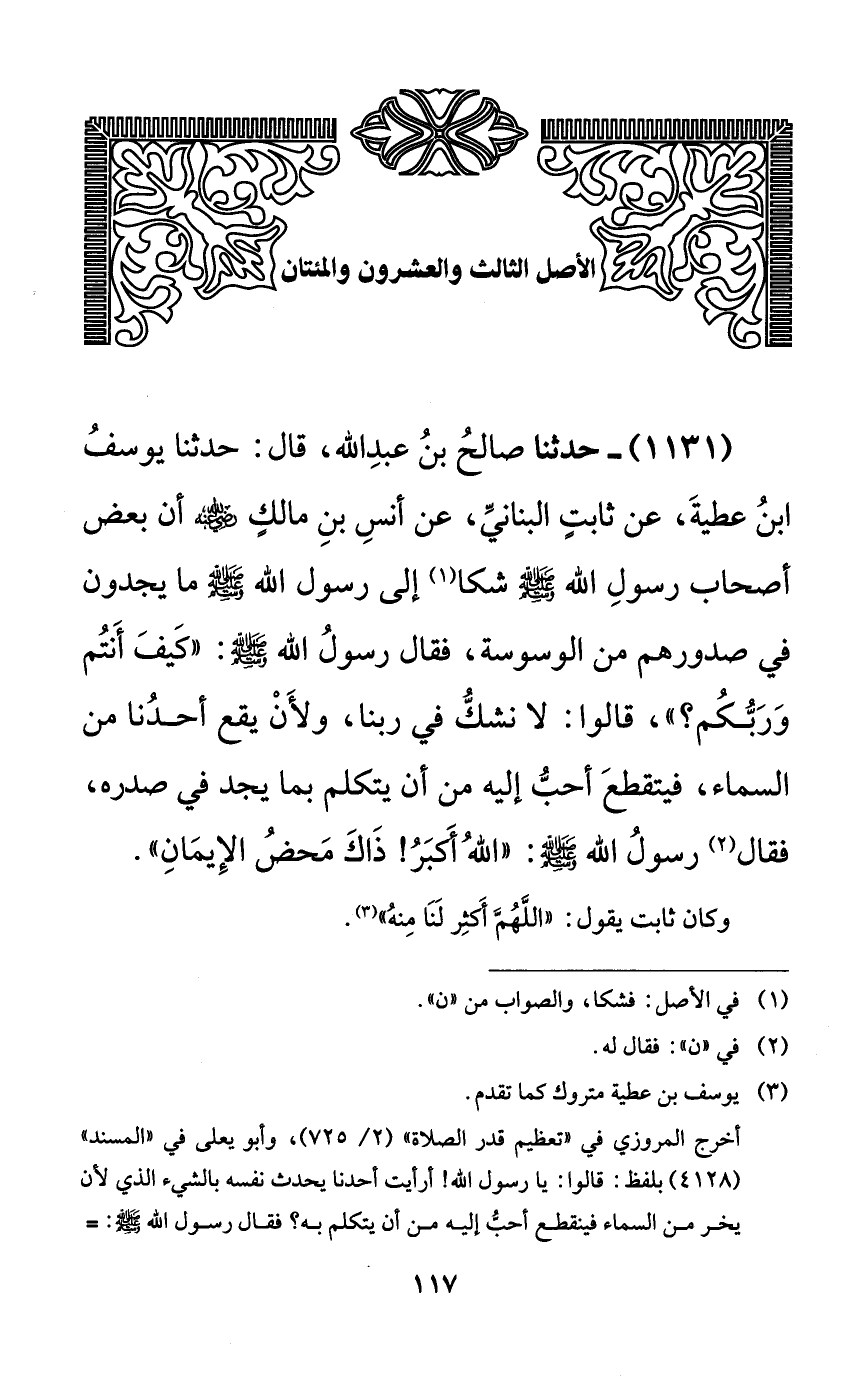 الأصل الثالث والعشرون والمئتان
(١١٣١) ـ حدثنا صالحُ بنُ عبدِالله، قال: حدثنا يوسفُ
ابنُ عطيةَ، عن ثابتٍ البنانيِّ، عن أنسِ بنِ مالكٍ رضي الله عنه أن بعض
أصحاب رسولِ الله ﷺ شكا(١) إلى رسول الله ﷺ ما يجدون
في صدورهم من الوسوسة، فقال رسولُ الله ﷺ: «كَيفَ أَنتُم
وَرَبُّكُم؟»، قالوا: لا نشكُّ في ربنا، ولأَنْ يقع أحدُنا من
السماء، فيتقطعَ أحبُّ إليه من أن يتكلم بما يجد في صدره،
فقال(٢) رسولُ الله ﷺ: «اللهُ أَكبَرُ! ذَاكَ مَحضُ الإِيمَانِ».
وكان ثابت يقول: «اللَّهُمَّ أَكثِر لَنَا مِنهُ»(٣).
(١) في الأصل: فشكا، والصواب من «ن».
(٢) في «ن»: فقال له.
(٣) يوسف بن عطية متروك كما تقدم.
أخرج المروزي في «تعظيم قدر الصلاة» (٢/ ٧٢٥)، وأبو يعلى في «المسند»
(٤١٢٨) بلفظ: قالوا: يا رسول الله! أرأيت أحدنا يحدث نفسه بالشيء الذي لأن
يخر من السماء فينقطع أحبُّ إليه من أن يتكلم به؟ فقال رسول الله ﷺ: =
١١٧